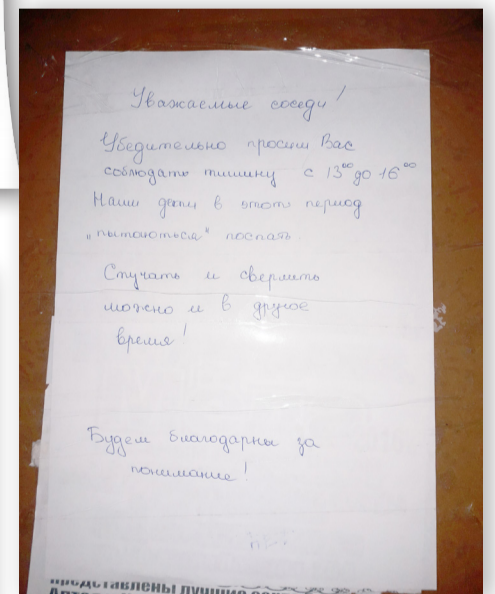 Уважаемые соседи!
Убедительно просим Вас
соблюдать тишину с 13⁰⁰ до 16⁰⁰
Наши дети в этот период
„пытаються" поспать
Стучать и сверлить
можно и в другое
время!
Будем благодарны за
понимание!
представлены лучшие